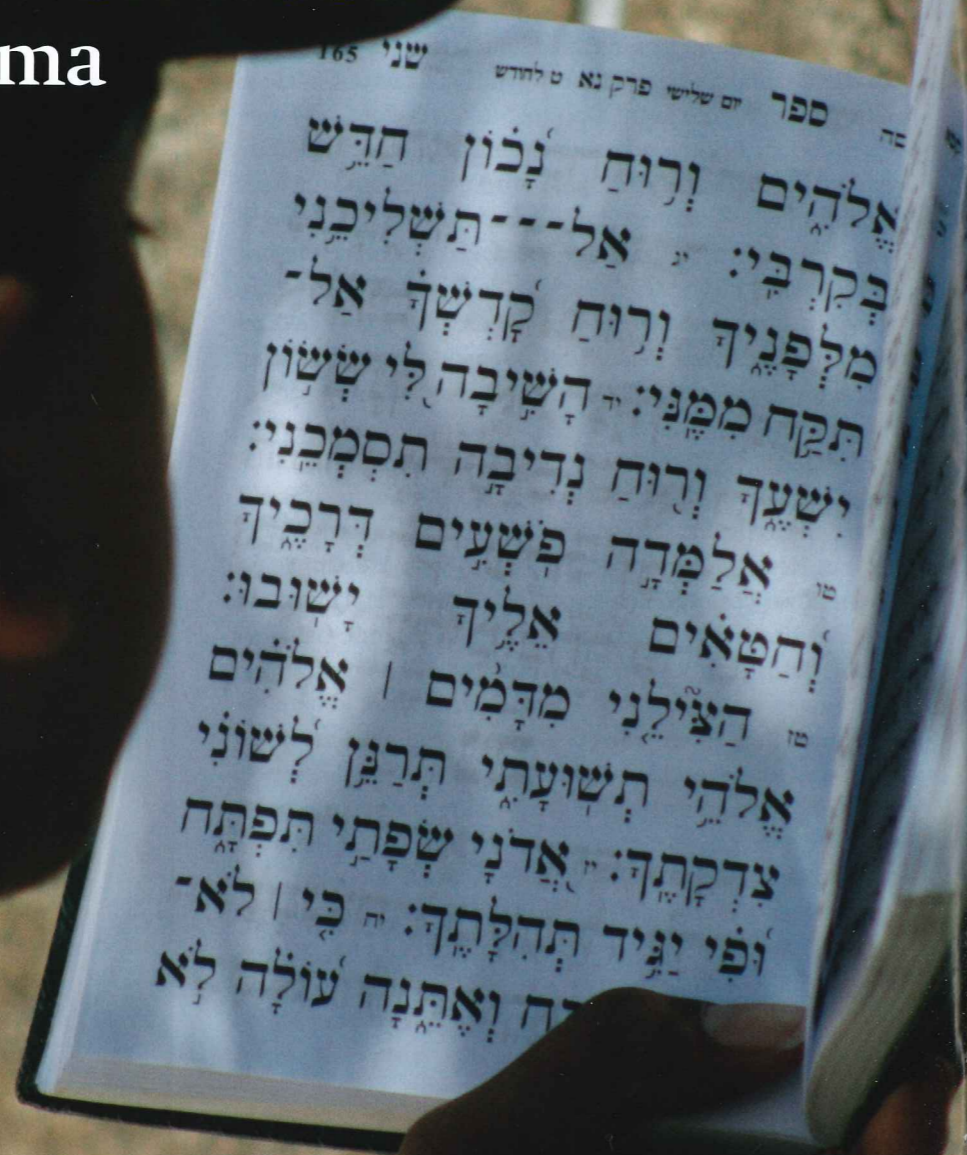 ma
165 שני
ספר יום שלישי פרק נא ט לחודש
אֱלֹהִים וְרוּחַ נָכוֹן חַדֵּשׁ
בְּקִרְבִּי: יג אַל־־־תַּשְׁלִיכֵנִי
מִלְּפָנֶיךָ וְרוּחַ קָדְשְׁךָ אַל־
תִּקַּח מִמֶּנִּי: יד הָשִׁיבָה לִּי שְׂשׂוֹן
יִשְׁעֶךָ וְרוּחַ נְדִיבָה תִסְמְכֵנִי:
טו אֲלַמְּדָה פֹשְׁעִים דְּרָכֶיךָ
וְחַטָּאִים אֵלֶיךָ יָשׁוּבוּ:
טז הַצִּילֵנִי מִדָּמִים | אֱלֹהִים
אֱלֹהֵי תְּשׁוּעָתִי תְּרַנֵּן לְשׁוֹנִי
צִדְקָתֶךָ: יז אֲדֹנָי שְׂפָתַי תִּפְתָּח
וּפִי יַגִּיד תְּהִלָּתֶךָ: יח כִּי | לֹא־
וְאֶתֵּנָה עוֹלָה לֹא